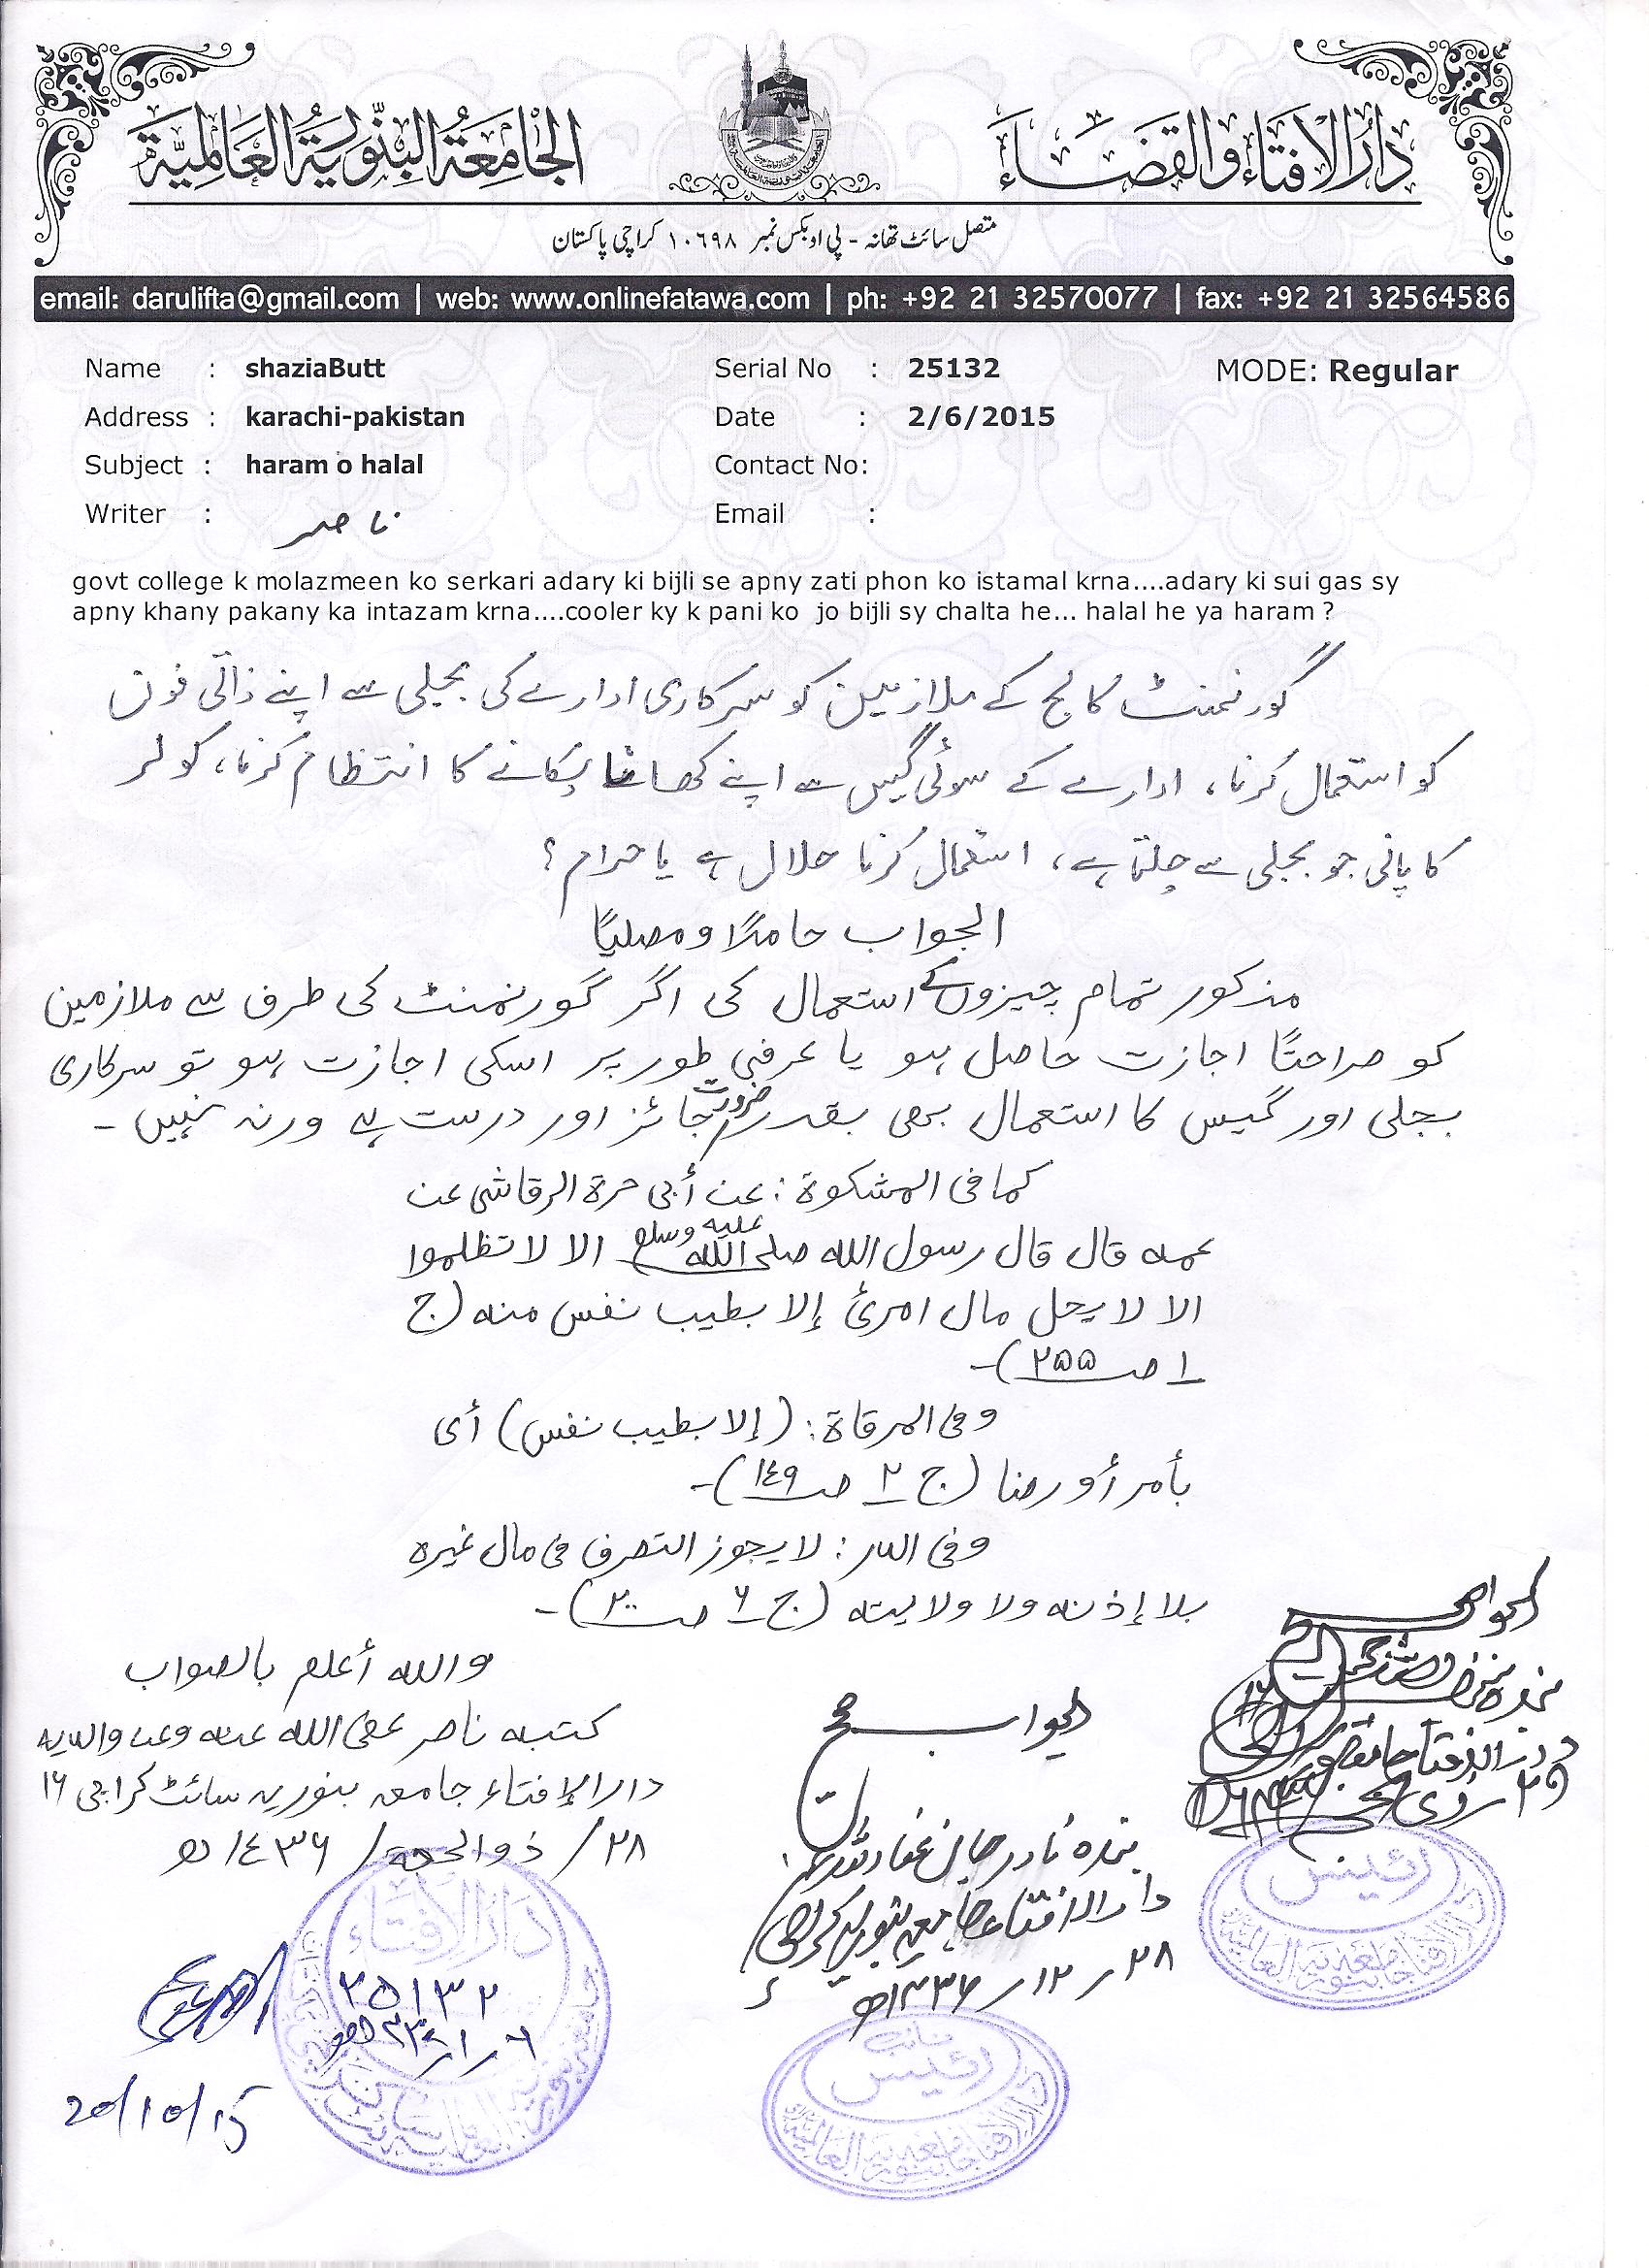 دَارُالإفتَاءوالقضَاء
الجَامِعَةُ البِنّورِيَّةُ العَالَمِيَّة
متصل سائٹ تھانہ - پی او بکس نمبر ١٠٦٩٨ کراچی پاکستان
email: darulifta@gmail.com | web: www.onlinefatawa.com | ph: +92 21 32570077 | fax: +92 21 32564586
Name : shaziaButt Serial No : 25132 MODE: Regular
Address : karachi-pakistan Date : 2/6/2015
Subject : haram o halal Contact No:
Writer : ناصر Email :
govt college k molazmeen ko serkari adary ki bijli se apny zati phon ko istamal krna....adary ki sui gas sy
apny khany pakany ka intazam krna....cooler ky k pani ko jo bijli sy chalta he... halal he ya haram ?
گورنمنٹ کالج کے ملازمین کو سرکاری ادارے کی بجلی سے اپنے ذاتی فون
کو استعمال کرنا، ادارے کے سوئی گیس سے اپنے کھانا پکانے کا انتظام کرنا، کولر
کا پانی جو بجلی سے چلتا ہے، استعمال کرنا حلال ہے یا حرام؟
الجواب حامدًا و مصلیًا
مذکور تمام چیزوں کے استعمال کی اگر گورنمنٹ کی طرف سے ملازمین
کو صراحتًا اجازت حاصل ہو یا عرفی طور پر اسکی اجازت ہو تو سرکاری
بجلی اور گیس کا استعمال بھی بقدر ضرورت جائز اور درست ہے ورنہ نہیں۔
کما فی المشکوة: عن أبی حرة الرقاشی عن
عمه قال قال رسول الله صلی الله علیه وسلم الا لا تظلموا
الا لا یحل مال امرئ إلا بطیب نفس منه (ج
١ صـ ٢٥٥)۔
وفی المرقاة: (إلا بطیب نفس) أی
بأمر أو رضا (ج ٢ صـ ١٤٩)۔
وفی الدر: لا یجوز التصرف فی مال غیره
بلا إذنه ولا ولایته (ج ٦ صـ ٢٠٠)۔
والله أعلم بالصواب
کتبه ناصر عفی الله عنه وعن والدیه
دار الإفتاء جامعہ بنوریہ سائٹ کراچی ١٦
٢٨/ ذوالحجة/ ١٤٣٦ھ
الجواب صحیح
بندہ نادر جان
دار الافتاء جامعہ بنوریہ کراچی
٢٨ ـ ١٢ ـ ١٤٣٦ھ
الجواب صحیح
دار الافتاء جامعہ بنوریہ
٢٩
رئیس
نائب
رئیس
دَارُالإفتَاء
٢٥١٣٢
20/10/15